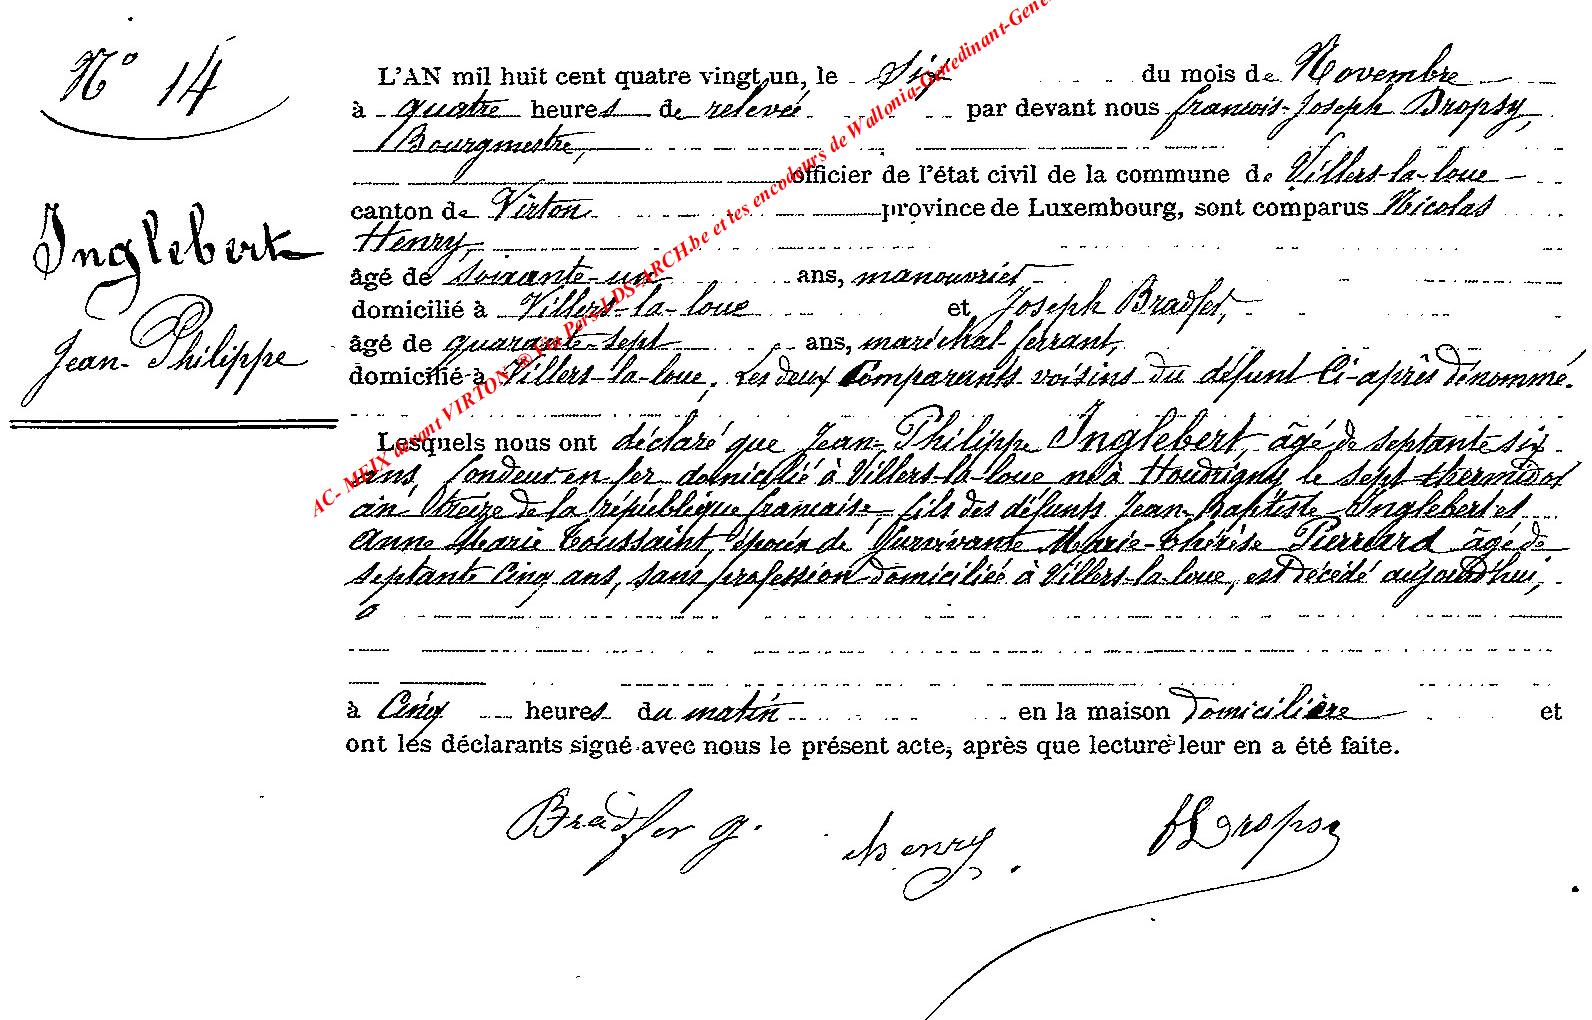 N° 14
Inglebert
Jean-Philippe
L'AN mil huit cent quatre vingt un, le six du mois de Novembre
à quatre heures de relevée par devant nous françois-Joseph Dropsy,
Bourgmestre,
officier de l'état civil de la commune de Villers-la-loue
canton de Virton province de Luxembourg, sont comparus Nicolas
Henry,
âgé de soixante-un ans, manouvrier
domicilié à Villers-la-loue et Joseph Bradfer,
âgé de quarante-sept ans, maréchal-ferrant,
domicilié à Villers-la-loue, Les deux Comparants voisins du défunt Ci-après dénommé.
Lesquels nous ont déclaré que Jean-Philippe Inglebert, âgé de septante six
ans, fondeur en fer domicilié à Villers-la-loue né à Houdrigny le sept thermidor
an treize de la république francaise, fils des défunts Jean-Baptiste Inglebert et
Anne Marie Toussaint, époux de Survivante Marie-Thérèse Pierrard âgé de
septante Cinq ans, sans profession domiciliée à Villers-la-loue, est décédé aujourd'hui,
à Cinq heures du matin en la maison Domicilière et
ont les déclarants signé avec nous le présent acte, après que lecture leur en a été faite.
Bradfer g. Henry fDropsy
AC- MEIX devant VIRTON ® Via Pers LDS-ARCH.be et les encodeurs de Wallonia-Genedinant-Gene